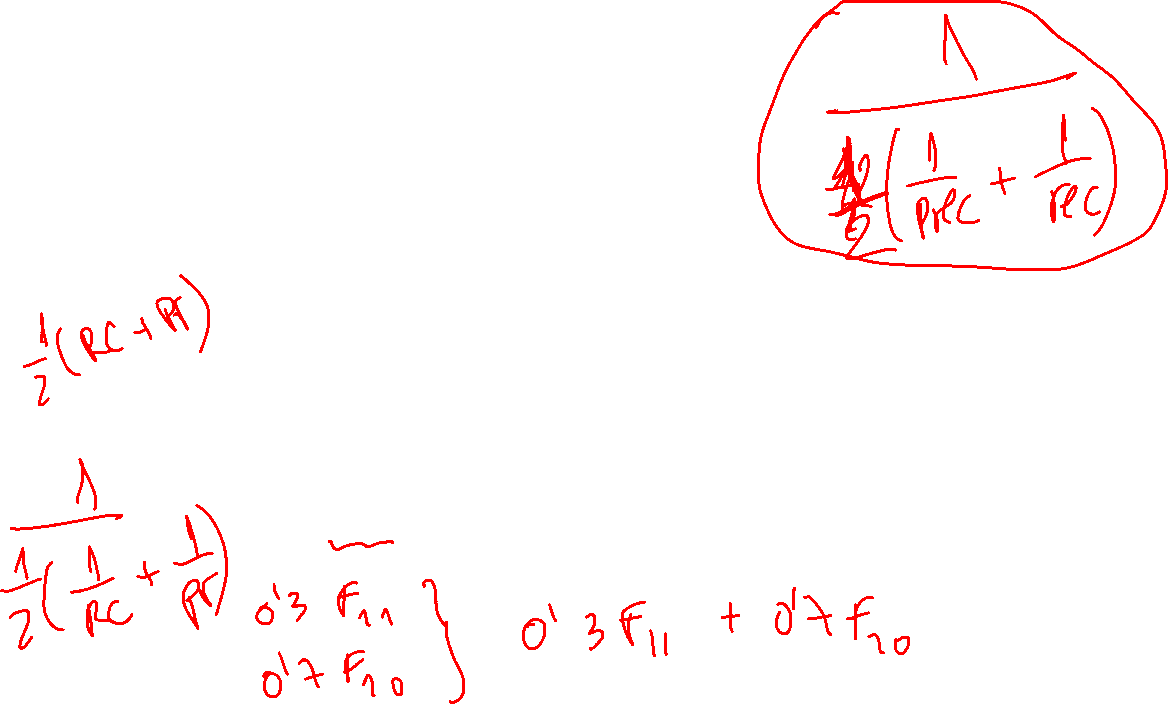 1
(1/prec + 1/rec)
1/2 (RC + Pr)
1
1/2 (1/RC + 1/Pr)
0'3 F₁₁
0'7 F₁₀
0'3 F₁₁ + 0'7 F₁₀